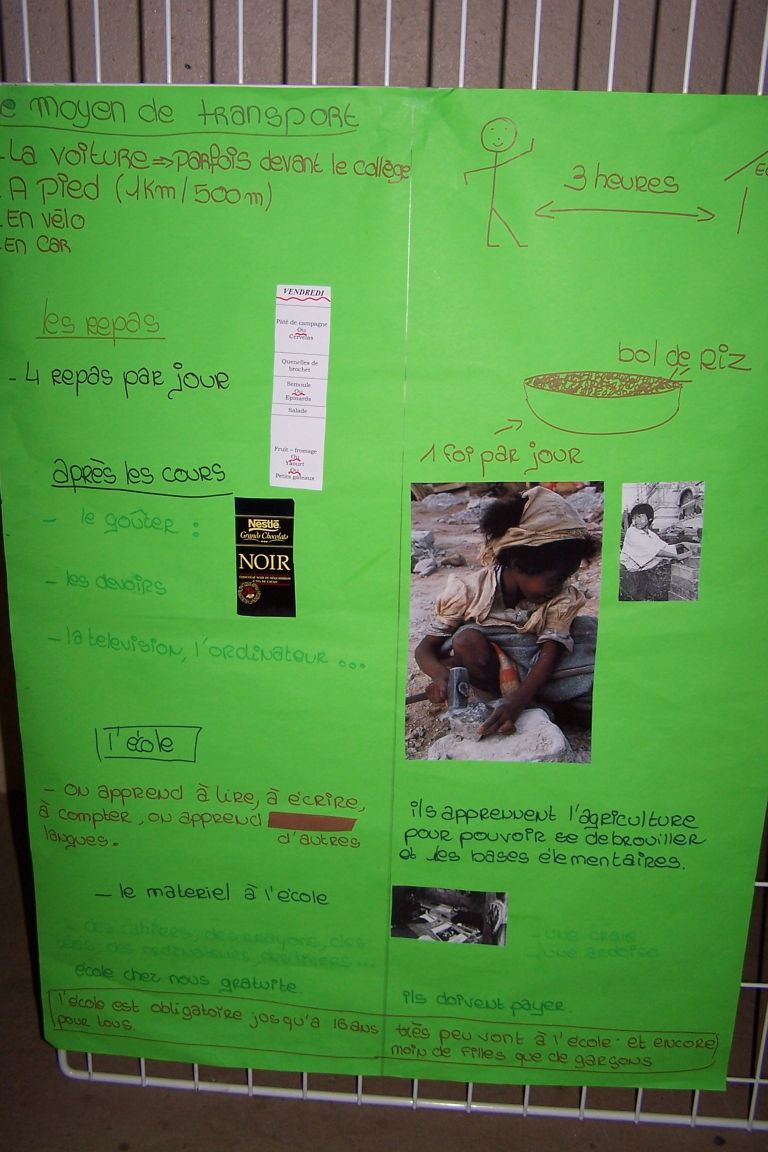 e moyen de transport
- La voiture ⇒ parfois devant le collège
- A pied (1Km/500m)
- En vélo
- En car
3 heures
les repas
- 4 repas par jour
VENDREDI
Pâté de campagne
Ou
Cervelas
Quenelles de
brochet
Semoule
Ou
Epinards
Salade
Fruit – fromage
Ou
Yaourt
Ou
Petits gâteaux
bol de riz
1 foi par jour
après les cours
- le goûter :
Nestlé
Grands Chocolats
NOIR
- les devoirs
- la television, l'ordinateur ...
l'école
- on apprend à lire, à écrire,
à compter, on apprend
d'autres
langues.
ils apprennent l'agriculture
pour pouvoir se debrouiller
et les bases élementaires.
- le materiel à l'école
- des cahiers, des crayons, des
des ordinateurs
- une craie
- une ardoise
école chez nous gratuite
ils doivent payer.
l'école est obligatoire josqu'a 16 ans
pour tous.
très peu vont à l'école et encore
moin de filles que de garçons